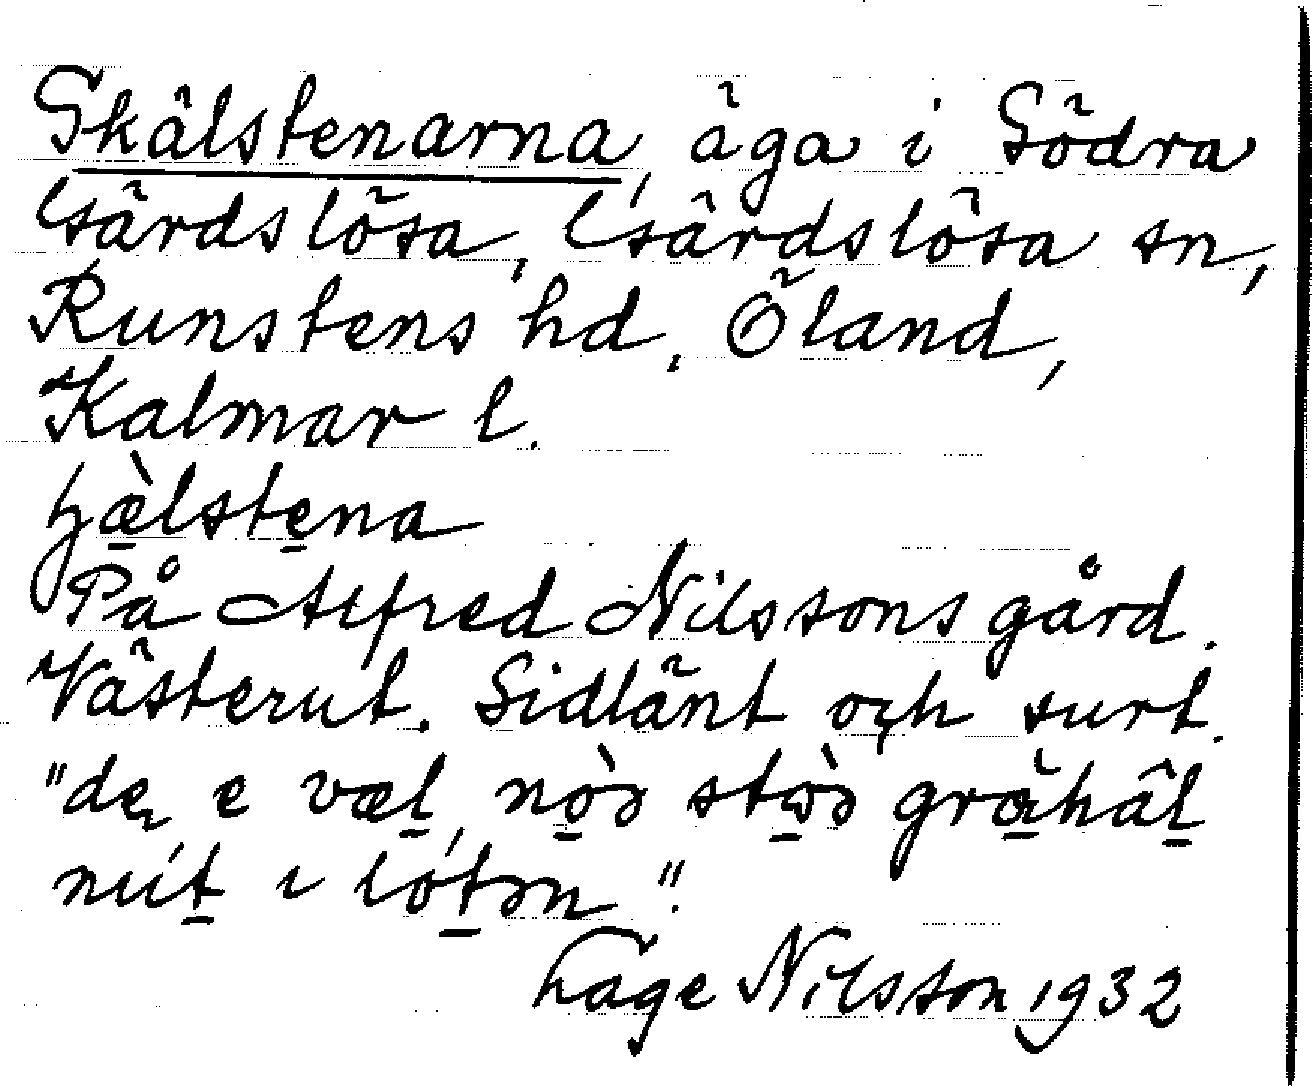 Skälstenarna, äga i Södra
Gärdslösa, Gärdslösa sn,
Runstens hd, Öland,
Kalmar l.
ɧæ̀lstena
På Alfred Nilssons gård.
Västerut. Sidlänt och surt.
"de e væl, nò̱ə stò̱ə grà̱hâḻ
mít ı lótən".
Tage Nilsson 1932